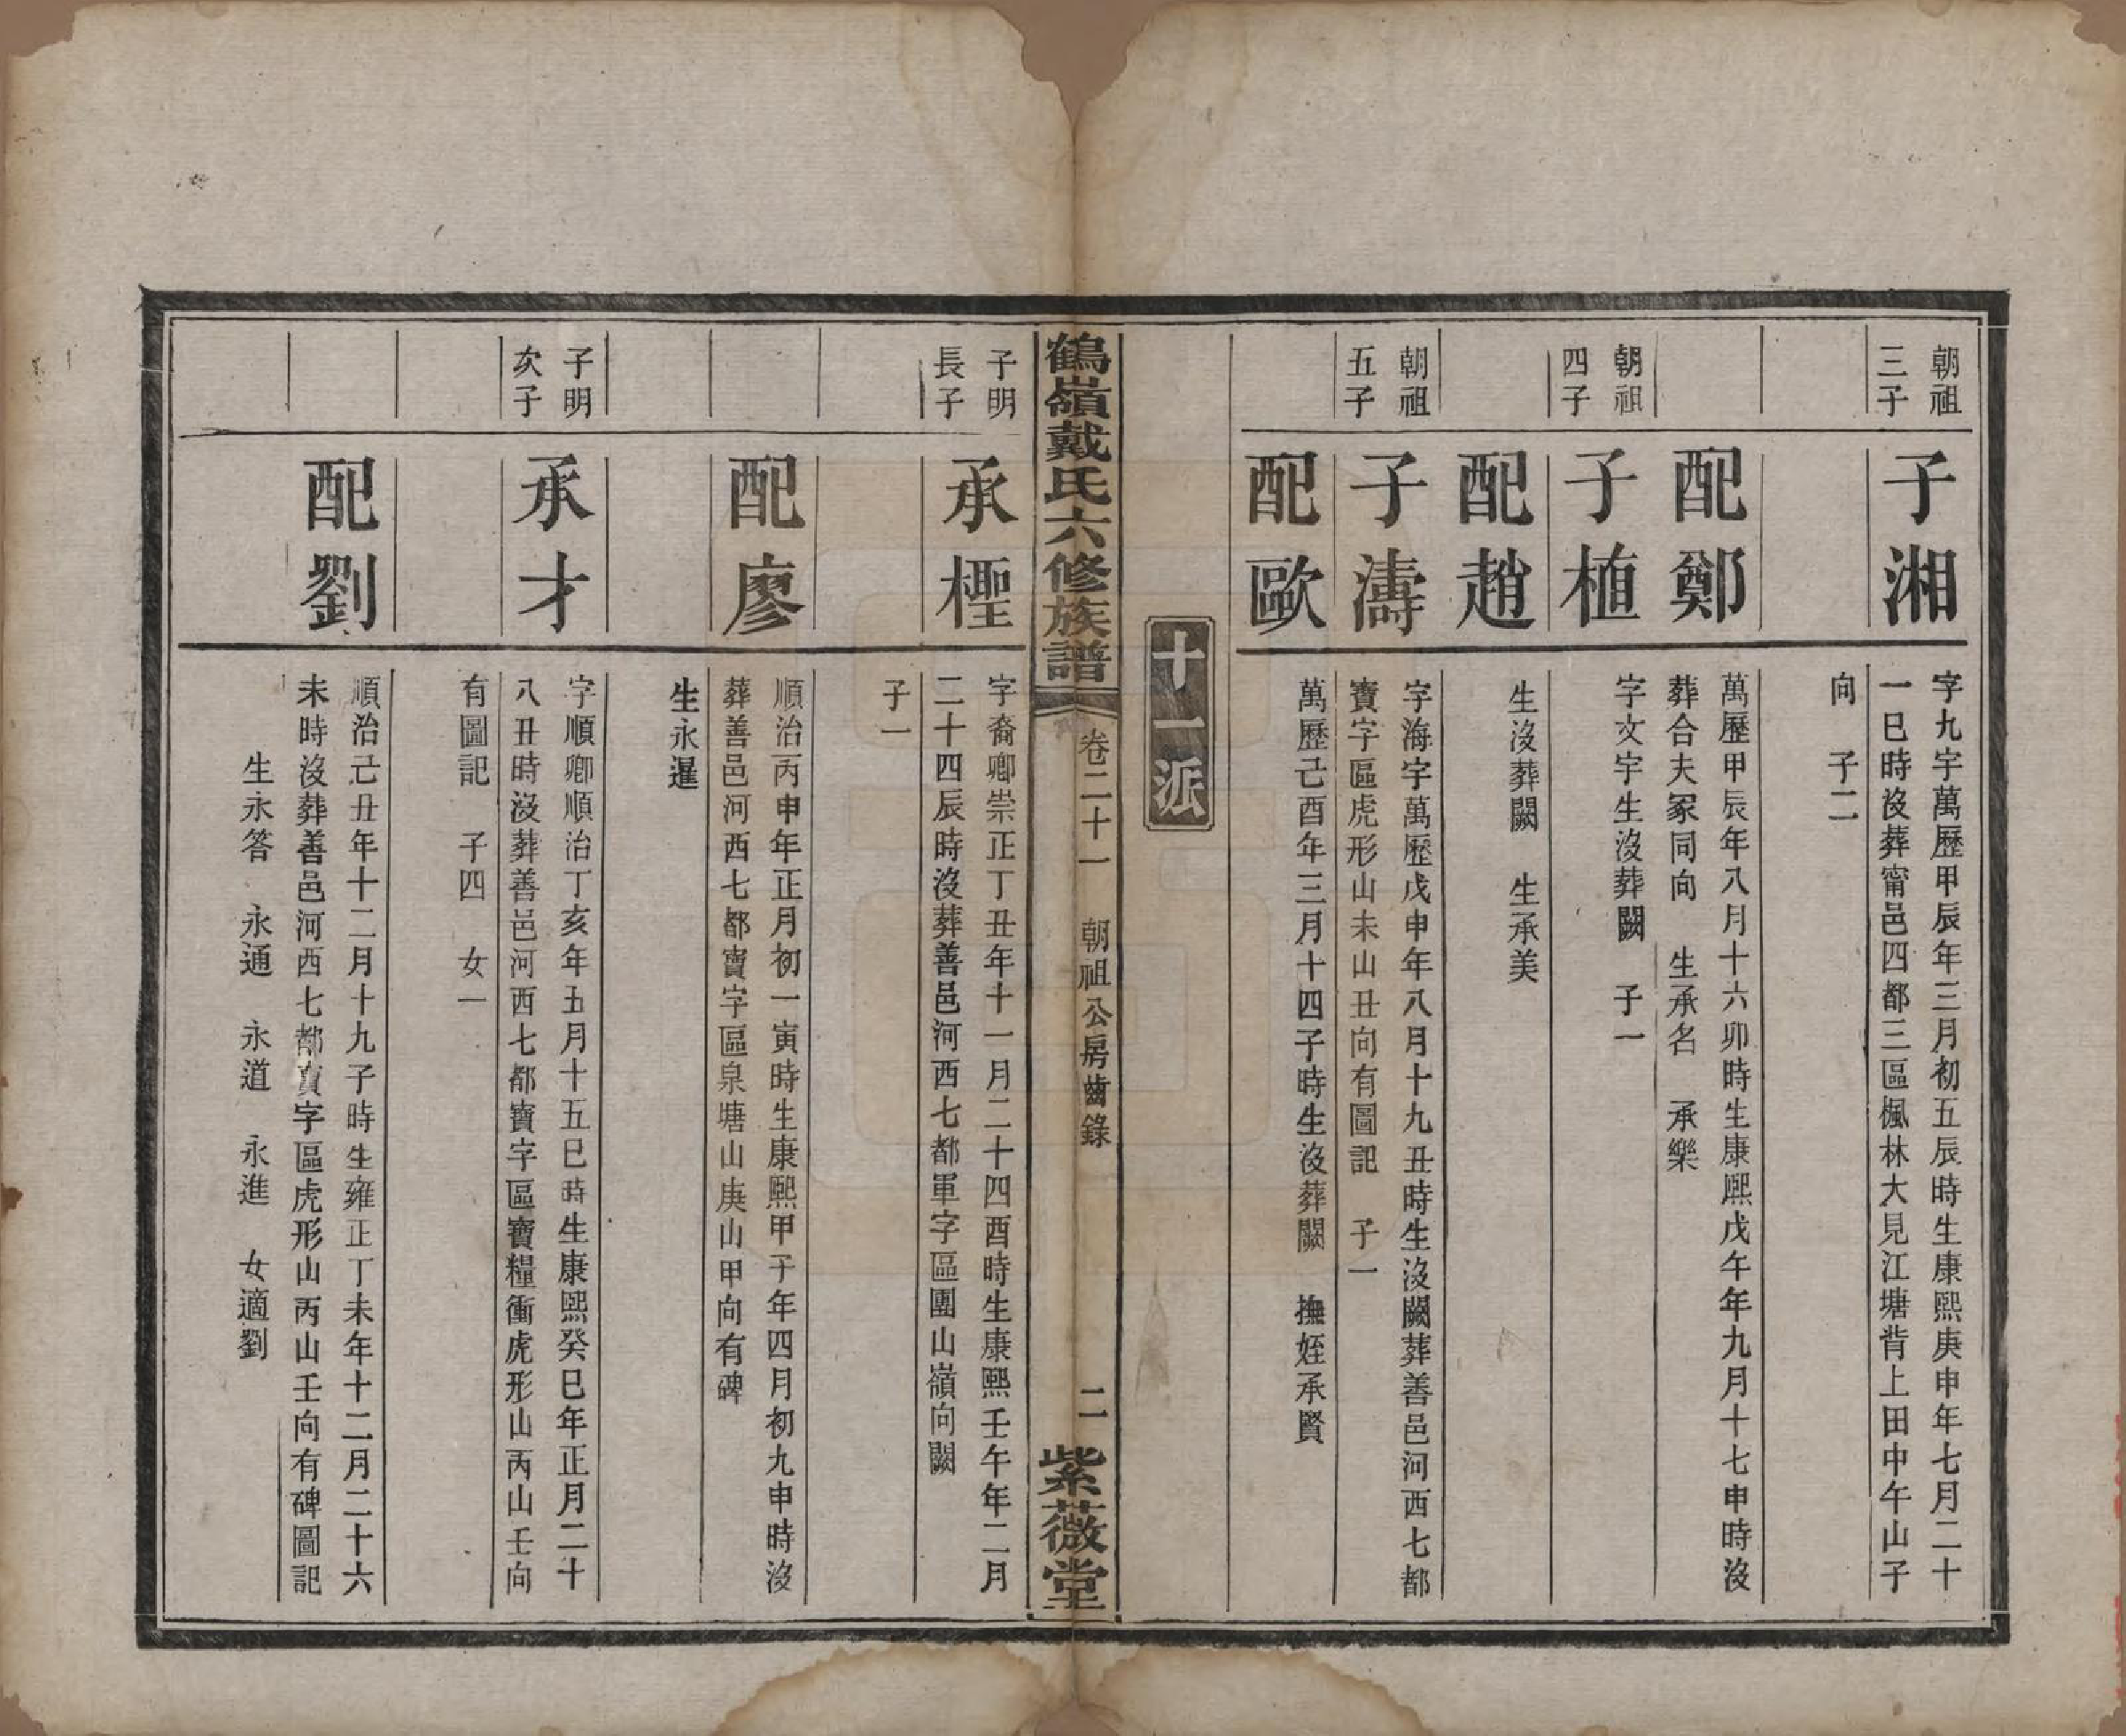 朝祖
三子
子湘
字九字萬歷甲辰年三月初五辰時生康熙庚申年七月二十
一巳時沒葬甯邑四都三區楓林大見江塘背上田中午山子
向　子二
配鄭
萬歷甲辰年八月十六卯時生康熙戊午年九月十七申時沒
葬合夫冢同向　生承名　承樂
朝祖
四子
子植
字文宇生沒葬闕　子一
配趙
生沒葬闕　生承美
朝祖
五子
子濤
字海宇萬歷戊申年八月十九丑時生沒闕葬善邑河西七都
寶字區虎形山未山丑向有圖記　子一
配歐
萬歷己酉年三月十四子時生沒葬闕　撫姪承賢
十一派
鶴嶺戴氏六修族譜
卷二十一　朝祖公房齒錄
二
紫薇堂
子明
長子
承檉
字裔卿崇正丁丑年十一月二十四酉時生康熙壬午年二月
二十四辰時沒葬善邑河西七都軍字區團山嶺向闕
子一
配廖
順治丙申年正月初一寅時生康熙甲子年四月初九申時沒
葬善邑河西七都寶字區泉塘山庚山甲向有碑
生永暹
子明
次子
承才
字順卿順治丁亥年五月十五巳時生康熙癸巳年正月二十
八丑時沒葬善邑河西七都寶字區寶糧衝虎形山丙山壬向
有圖記　子四　女一
配劉
順治己丑年十二月十九子時生雍正丁未年十二月二十六
未時沒葬善邑河西七都寶字區虎形山丙山壬向有碑圖記
生永答　永通　永道　永進　女適劉